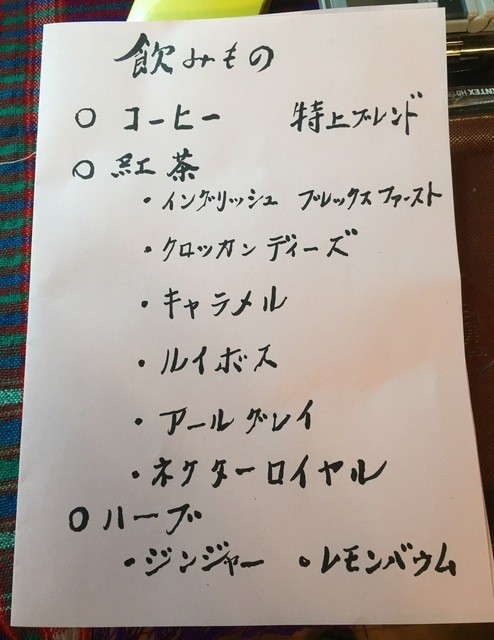 飲みもの
○ コーヒー 特上ブレンド
○ 紅茶
・イングリッシュ ブレックスファースト
・クロッカンディーズ
・キャラメル
・ルイボス
・アールグレイ
・ネクターロイヤル
○ ハーブ
・ジンジャー ・レモンバウム